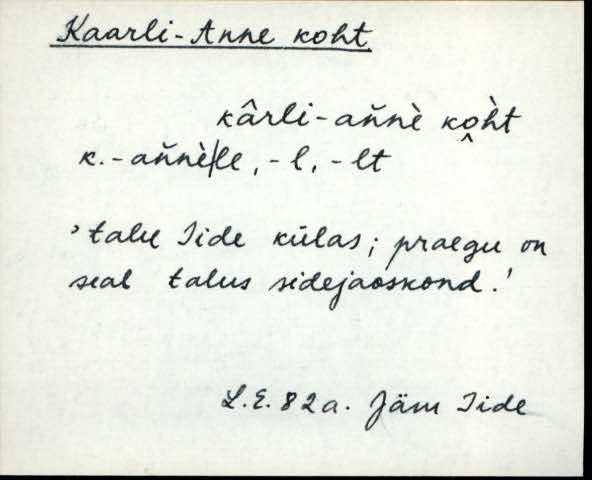 Kaarli-Anne koht
kârli-an̆nè ko̭h̀t
k.-an̆nè|le, -l, -lt
'talu Iide külas; praegu on
seal talus sidejaoskond.'
L.E. 82a. Jäm Iide